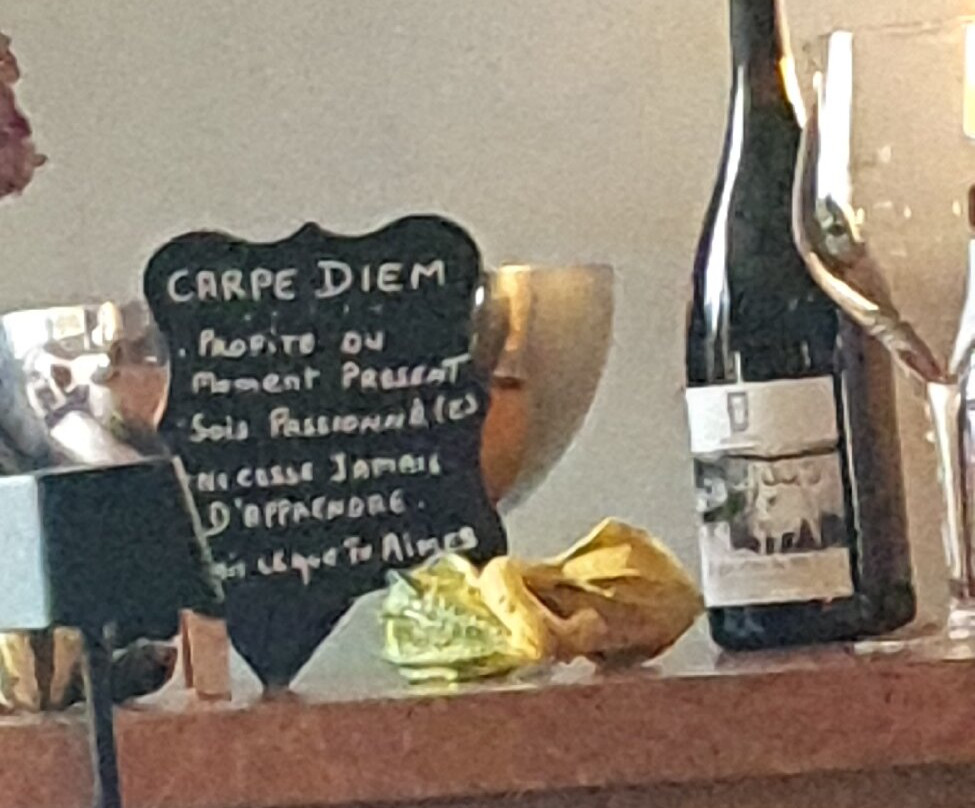 CARPE DIEM
. PROFITE DU
Moment PRESENT
. Sois PASSIONNÉ(E)
. NE CESSE JAMAIS
D'APPRENDRE.
ce que Tu AIMES